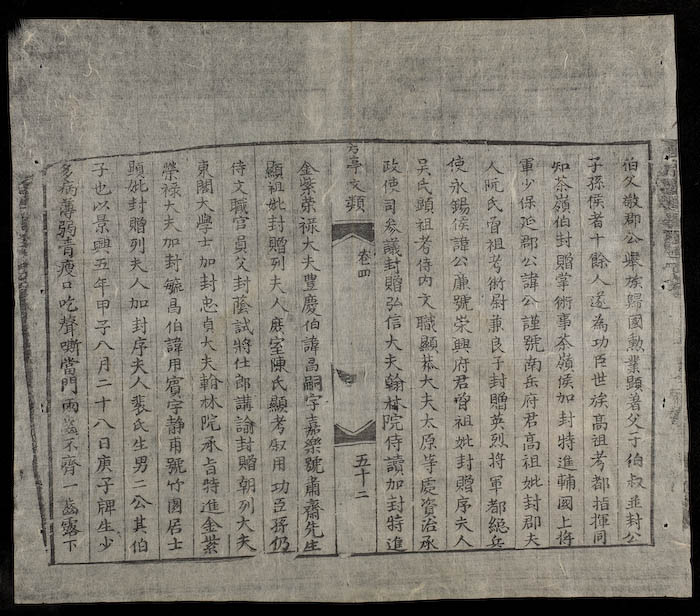 伯父敬郡公舉族歸國勲業顯著父子伯叔並封公
子孫侯者十餘人遂為功臣世族高祖考都指揮同
知茶嶺伯封贈掌衛事茶嶺侯加封特進輔國上將
軍少保延郡公諱公謹號南岳府君高祖妣封郡夫
人阮氏曾祖考衛尉兼良子封贈英烈將軍都總兵
使永錫侯諱公廉號荣興府君曾祖妣封贈序夫人
吳氏顕祖考侍内文職顯恭大夫太原等處資治承
政使司參議封贈弘信大夫翰林院侍讀加封特進
方亭文類 卷四 五十二
金紫荣禄大夫豊慶伯諱昌嗣字嘉樂號肅齋先生
顯祖妣封贈列夫人庶室陳氏顯考叙用功臣孫仍
侍文職官貞父封蔭試將仕郎講諭封贈朝列大夫
東閣大學士加封忠貞大夫翰林院承旨特進金紫
榮禄大夫加封毓昌伯諱用賓字静甫號竹園居士
顕妣封贈列夫人加封序夫人裴氏生男二公其伯
子也以景興五年甲子八月二十八日庚子牌生少
多病薄弱青瘦口吃聲嘶當門兩齒不齊一齒露下